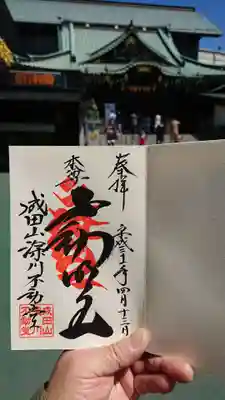 奉拝
平成三十年四月十三日
本尊
不動明王
成田山深川不動堂